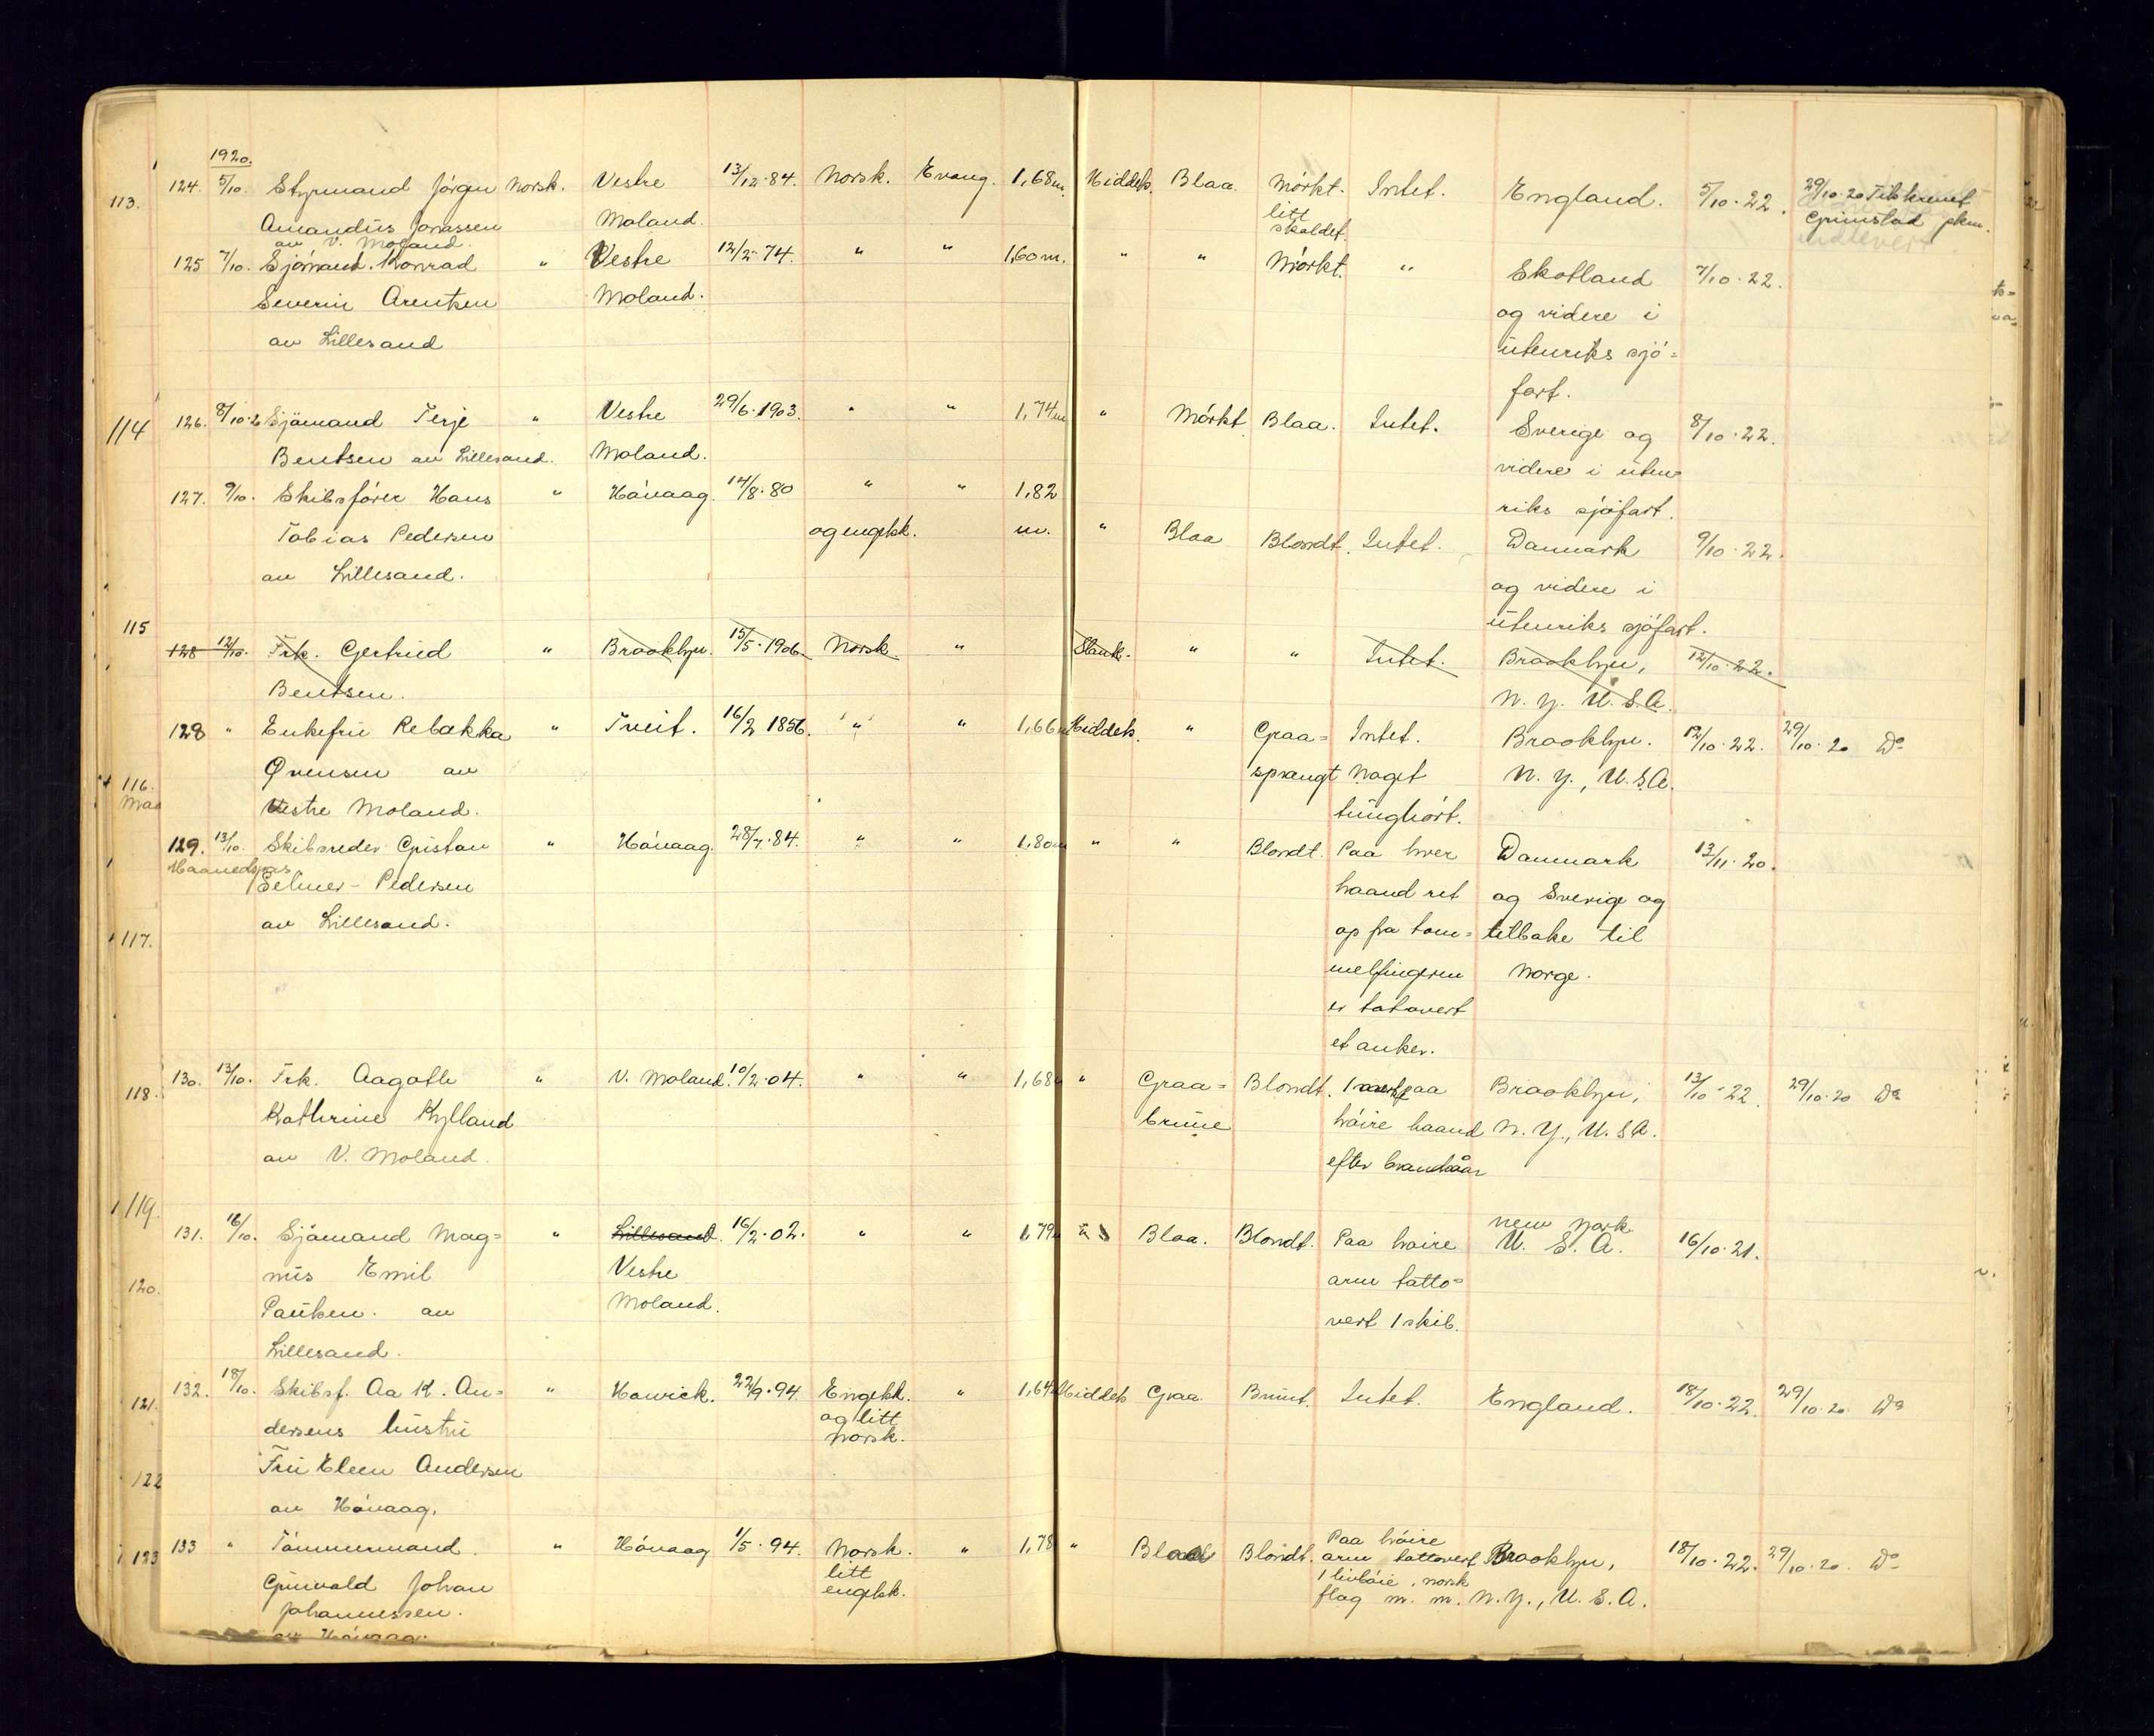 1920.
113. 124. 5/10. Styrmand Jörgen Norsk. Vestre 13/12.84. Norsk. Evang. 1,68 m. Middels. Blaa. Mörkt. Intet. England. 5/10.22. 29/10.20 Tilskrevet
Amandus Jonassen Moland. litt Grimstad pkm.
av V. Moland. skaldet.
125 7/10. Sjömand. Konrad " Vestre 12/2.74. " " 1,60 m. " " Mörkt. " Skotland 7/10.22.
Severin Arentsen Moland. og videre i
av Lillesand utenriks sjö=
fart.
114 126. 8/10.2 Sjömand Terje " Vestre 29/6.1903. " " 1,74 m " Mörkt Blaa. Intet. Sverige og 8/10.22.
Bentsen av Lillesand. Moland. videre i uten=
127. 9/10. Skibsförer Hans " Hövaag. 14/8.80 " " 1,82 riks sjöfart.
Tobias Pedersen og engelsk. m. " Blaa Blondt. Intet. Danmark 9/10.22.
av Lillesand. og videre i
115 utenriks sjöfart.
128 12/10. Frk. Gertrud " Brooklyn. 15/5.1906. Norsk. " Slank. " " Intet. Brooklyn, 12/10.22.
Bentsen. N. Y. U. S. A.
128 " Enkefru Rebekka " Tveit. 16/2 1856. " " 1,66 m Middels. " Graa= Intet. Brooklyn. 12/10.22. 29/10.20 Do
116. Övensen av sprængt Noget N. Y., U. S. A.
Maa Vestre Moland. tunghört.
129. 13/10. Skibsreder Cristen " Hövaag. 28/7.84. " " 1,80 m " " Blondt. Paa hver Danmark 13/11.20.
Maanedspas Eelmer-Pedersen haand ret og Sverige og
117. av Lillesand. op fra tom= tilbake til
melfingeren Norge.
er tatovert
et anker.
118. 130. 13/10. Frk. Aagoth " V. Moland. 10/2.04. " " 1,68 " Graa= Blondt. 1 merke paa Brooklyn, 13/10.22 29/10.20 Do
Kathrine Kylland brune höire haand N. Y., U. S. A.
av V. Moland. efter brandsår
119. 131. 16/10. Sjömand Mag= " Lillesand. 16/2.02. " " 1,79 " Blaa. Blondt. Paa höire New York U. S. A. 16/10.21.
120. nus Emil Vestre arm tatto=
Paulsen. av Moland. vert 1 skib.
Lillesand.
121. 132. 18/10. Skibsf. Aa K. An= " Howick. 22/9.94. Engelsk. " 1,64 Middels Graa. Brunt. Intet. England. 18/10.22. 29/10.20 Do
dersens hustru og litt
Norsk.
122 Fru Eleen Andersen
av Hövaag.
123 133 " Tömmermand. " Hövaag 1/5.94. Norsk. " 1,78 " Blaa Blondt. Paa höire
arm tattovert Brooklyn, 18/10.22. 29/10.20. Do
Gunvald Johan litt 1 livböie, norsk
Johannessen. engelsk. flag m. m. N. Y., U. S. A.
av Hövaag.